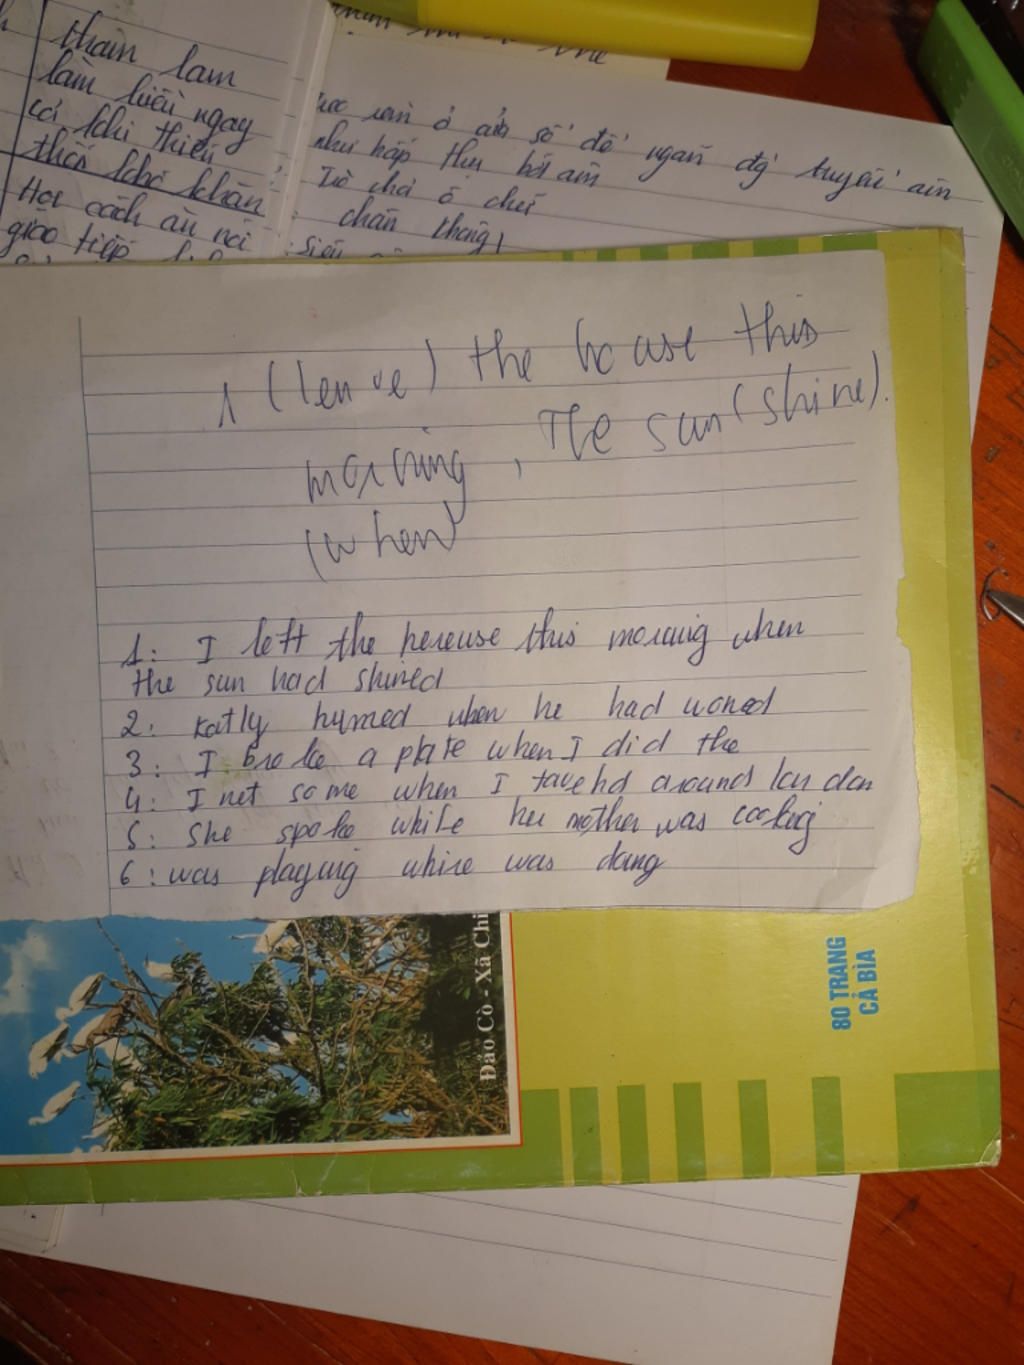 tham lam
làm liều ngay
cả khi thiếu
thói khó khăn
Học cách ăn nói
giao tiếp
ở số đố ngan
tuyết
như hấp thu bởi
chân thông
1 (leave) the house this
morning, The sun (shine).
(when)
1: I left the hereuse this morning when
the sun had shined
2: Katly hurned when he had woned
3: I broke a plate when I did the
4: I net some when I tavehd arounds London
5: She spoke while her mother was cooking
6: was playing whire was dang
Đảo Cò - Xã Chi
80 TRANG
CẢ BÌA